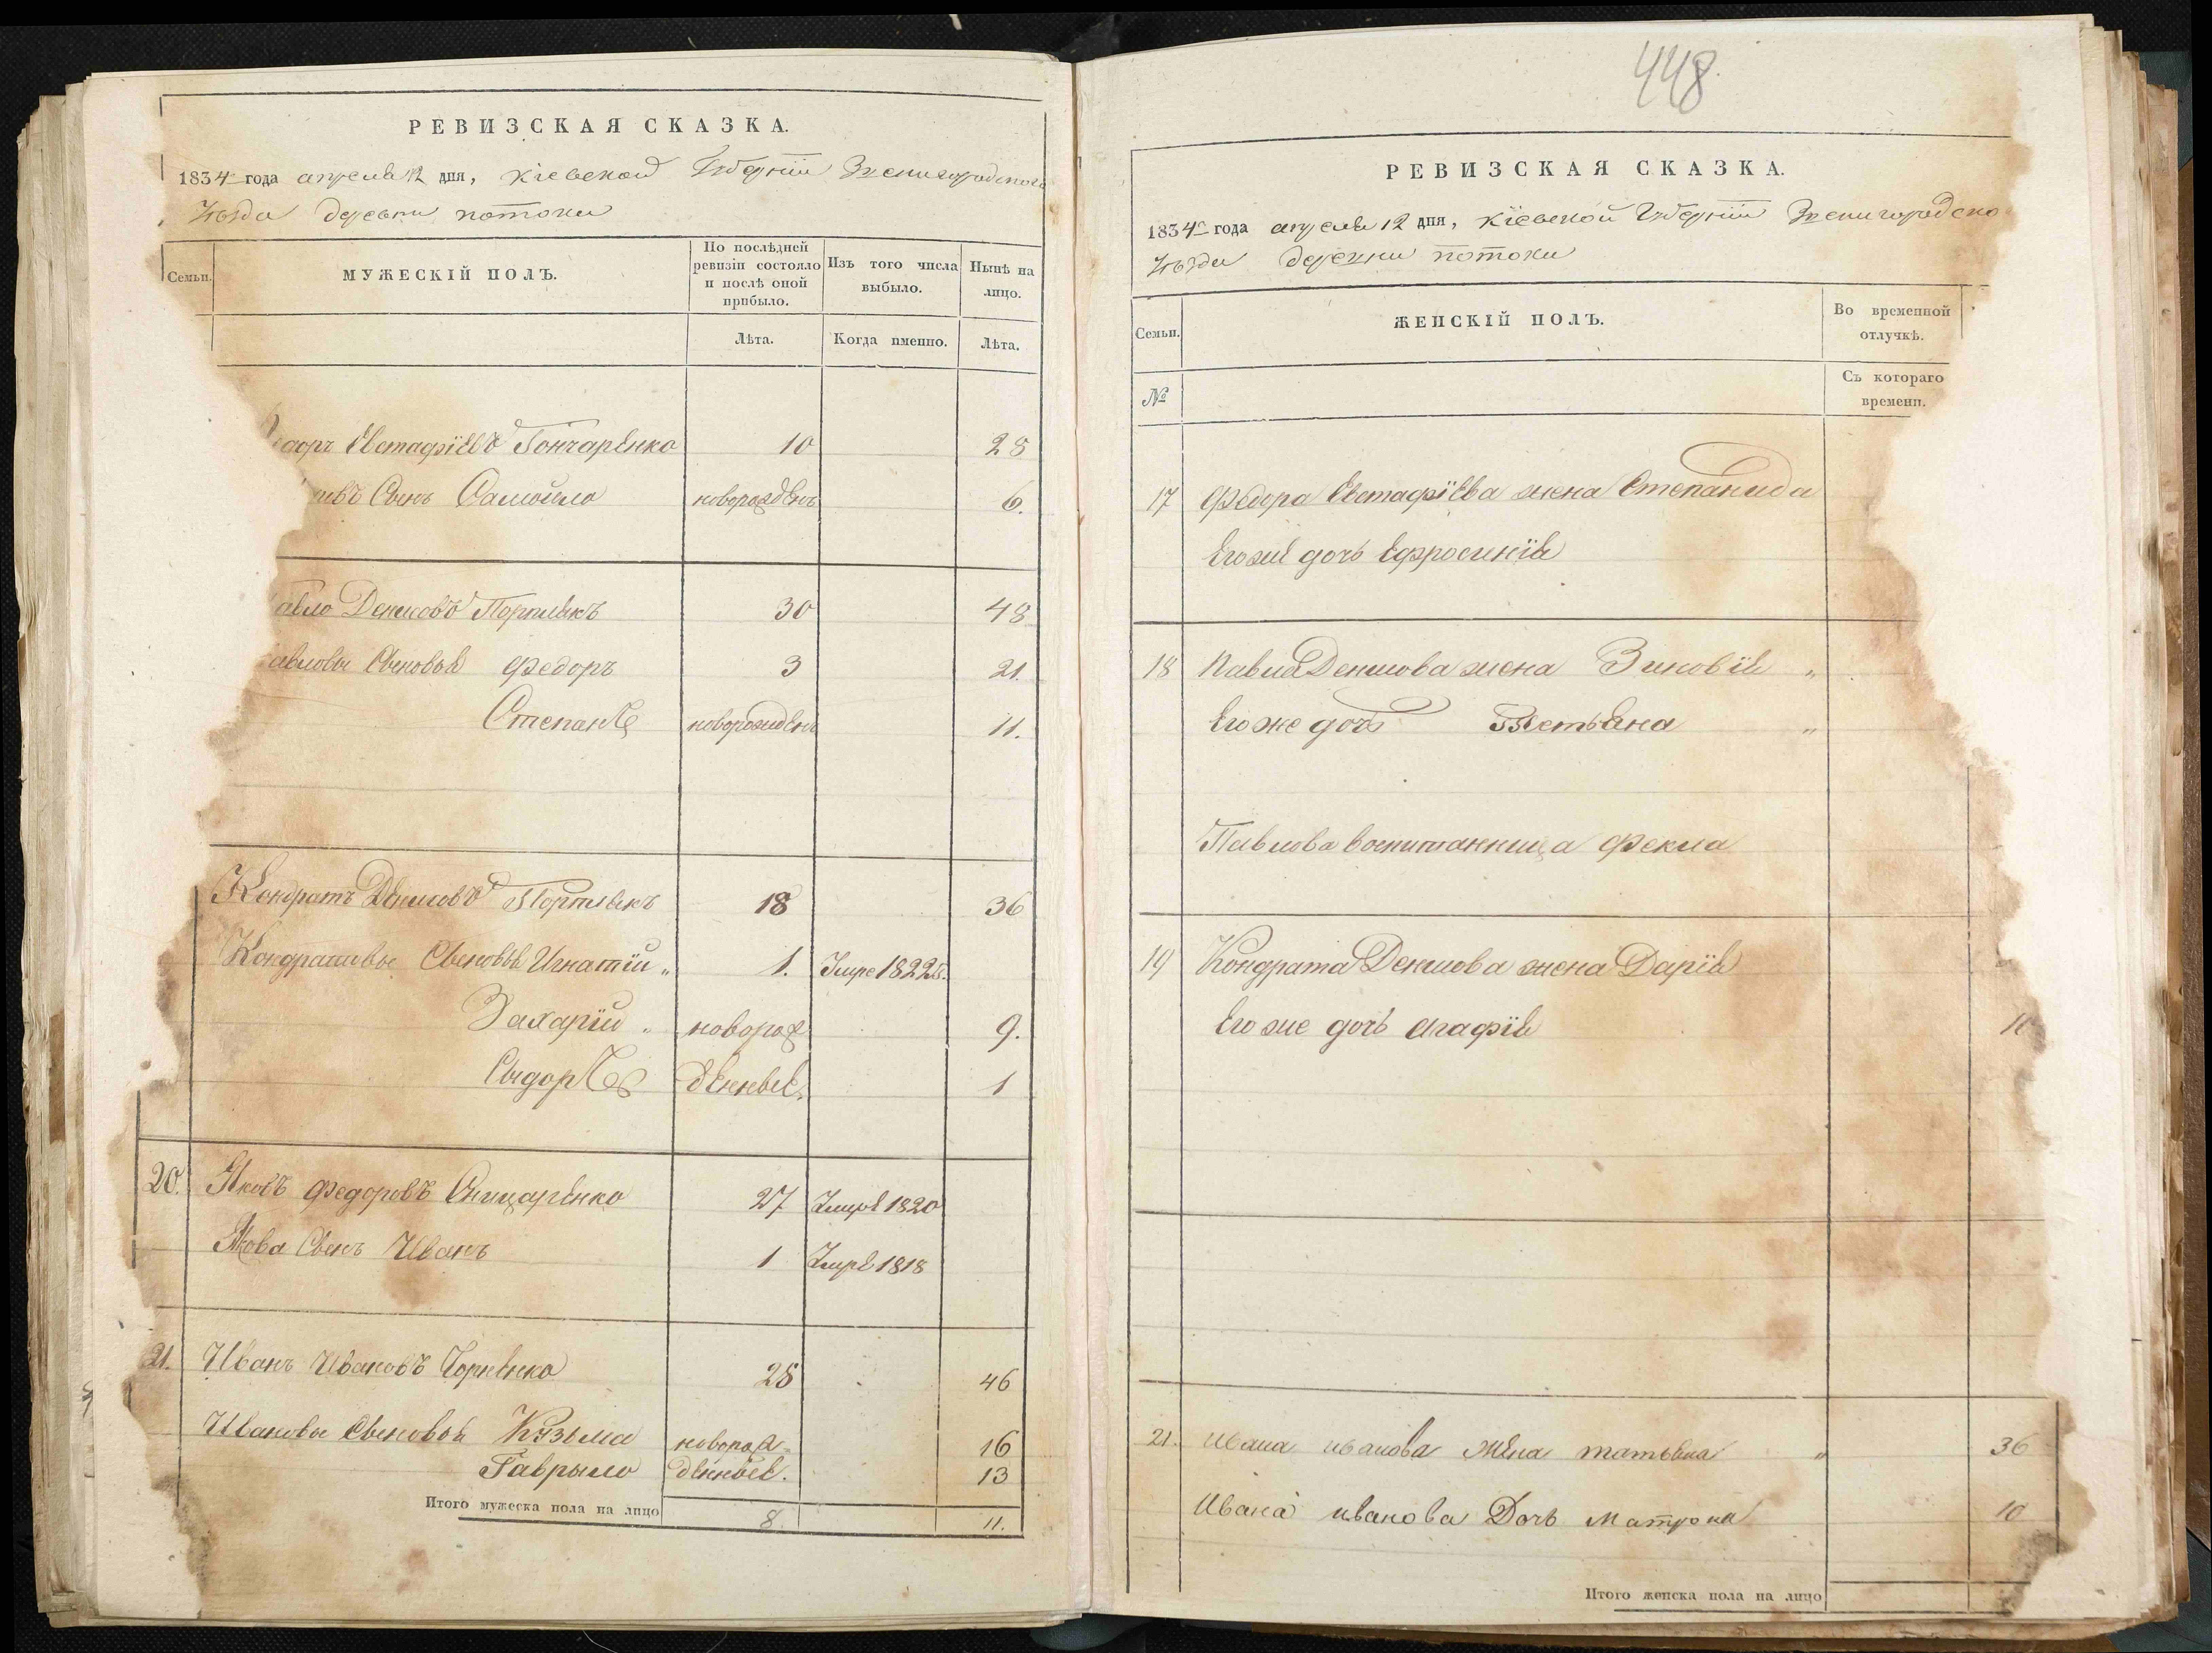 РЕВИЗСКАЯ СКАЗКА.
1834 года апреля 12 дня, Кіевской Губерніи Звенигородского
Уѣзда деревни потоки
Семьи.
МУЖЕСКІЙ ПОЛЪ.
По послѣдней ревизіи состояло и послѣ оной прибыло.
Изъ того числа выбыло.
Нынѣ на лицо.
Лѣта.
Когда именно.
Лѣта.
Евстафіевъ Гончаренко 10 28
Сынъ Самойло новорожденъ 6.
Денисовъ Портнякъ 30 48
Сыновья Федоръ 3 21.
Степанъ новорожденъ 11.
Кондратъ Денисовъ Портнякъ 18 36
Кондратовы Сыновья Игнатій „ 1. Умре 1822
Захарій „ новорож 9.
Сыдоръ денные. 1
20. Яковъ Федоровъ 27 Умре 1820
Якова Сынъ Иванъ 1 Умре 1818
21. Иванъ Ивановъ Чорненко 28 46
Ивановы Сыновья Кузьма новорож= 16
Гаврыло денные. 13
Итого мужеска пола на лицо 8. 11.
448
РЕВИЗСКАЯ СКАЗКА.
1834 года апреля 12 дня, Кіевской Губерніи Звенигородско
Уѣзда деревни потоки
Семьи.
ЖЕНСКІЙ ПОЛЪ.
Во временной отлучкѣ.
№
Съ котораго времени.
17 Федора Евстафіева жена Степанида
Его же дочь Ефросинія
18 Павла Денисова жена Зиновія „
Его же дочь Тетьяна „
Павлова воспитанница Фекла
19 Кондрата Денисова жена Дарія
Его же дочь Агафія
21. Ивана иванова жена татьяна „ 36
Ивана иванова Дочь Матрона 10
Итого женска пола на лицо